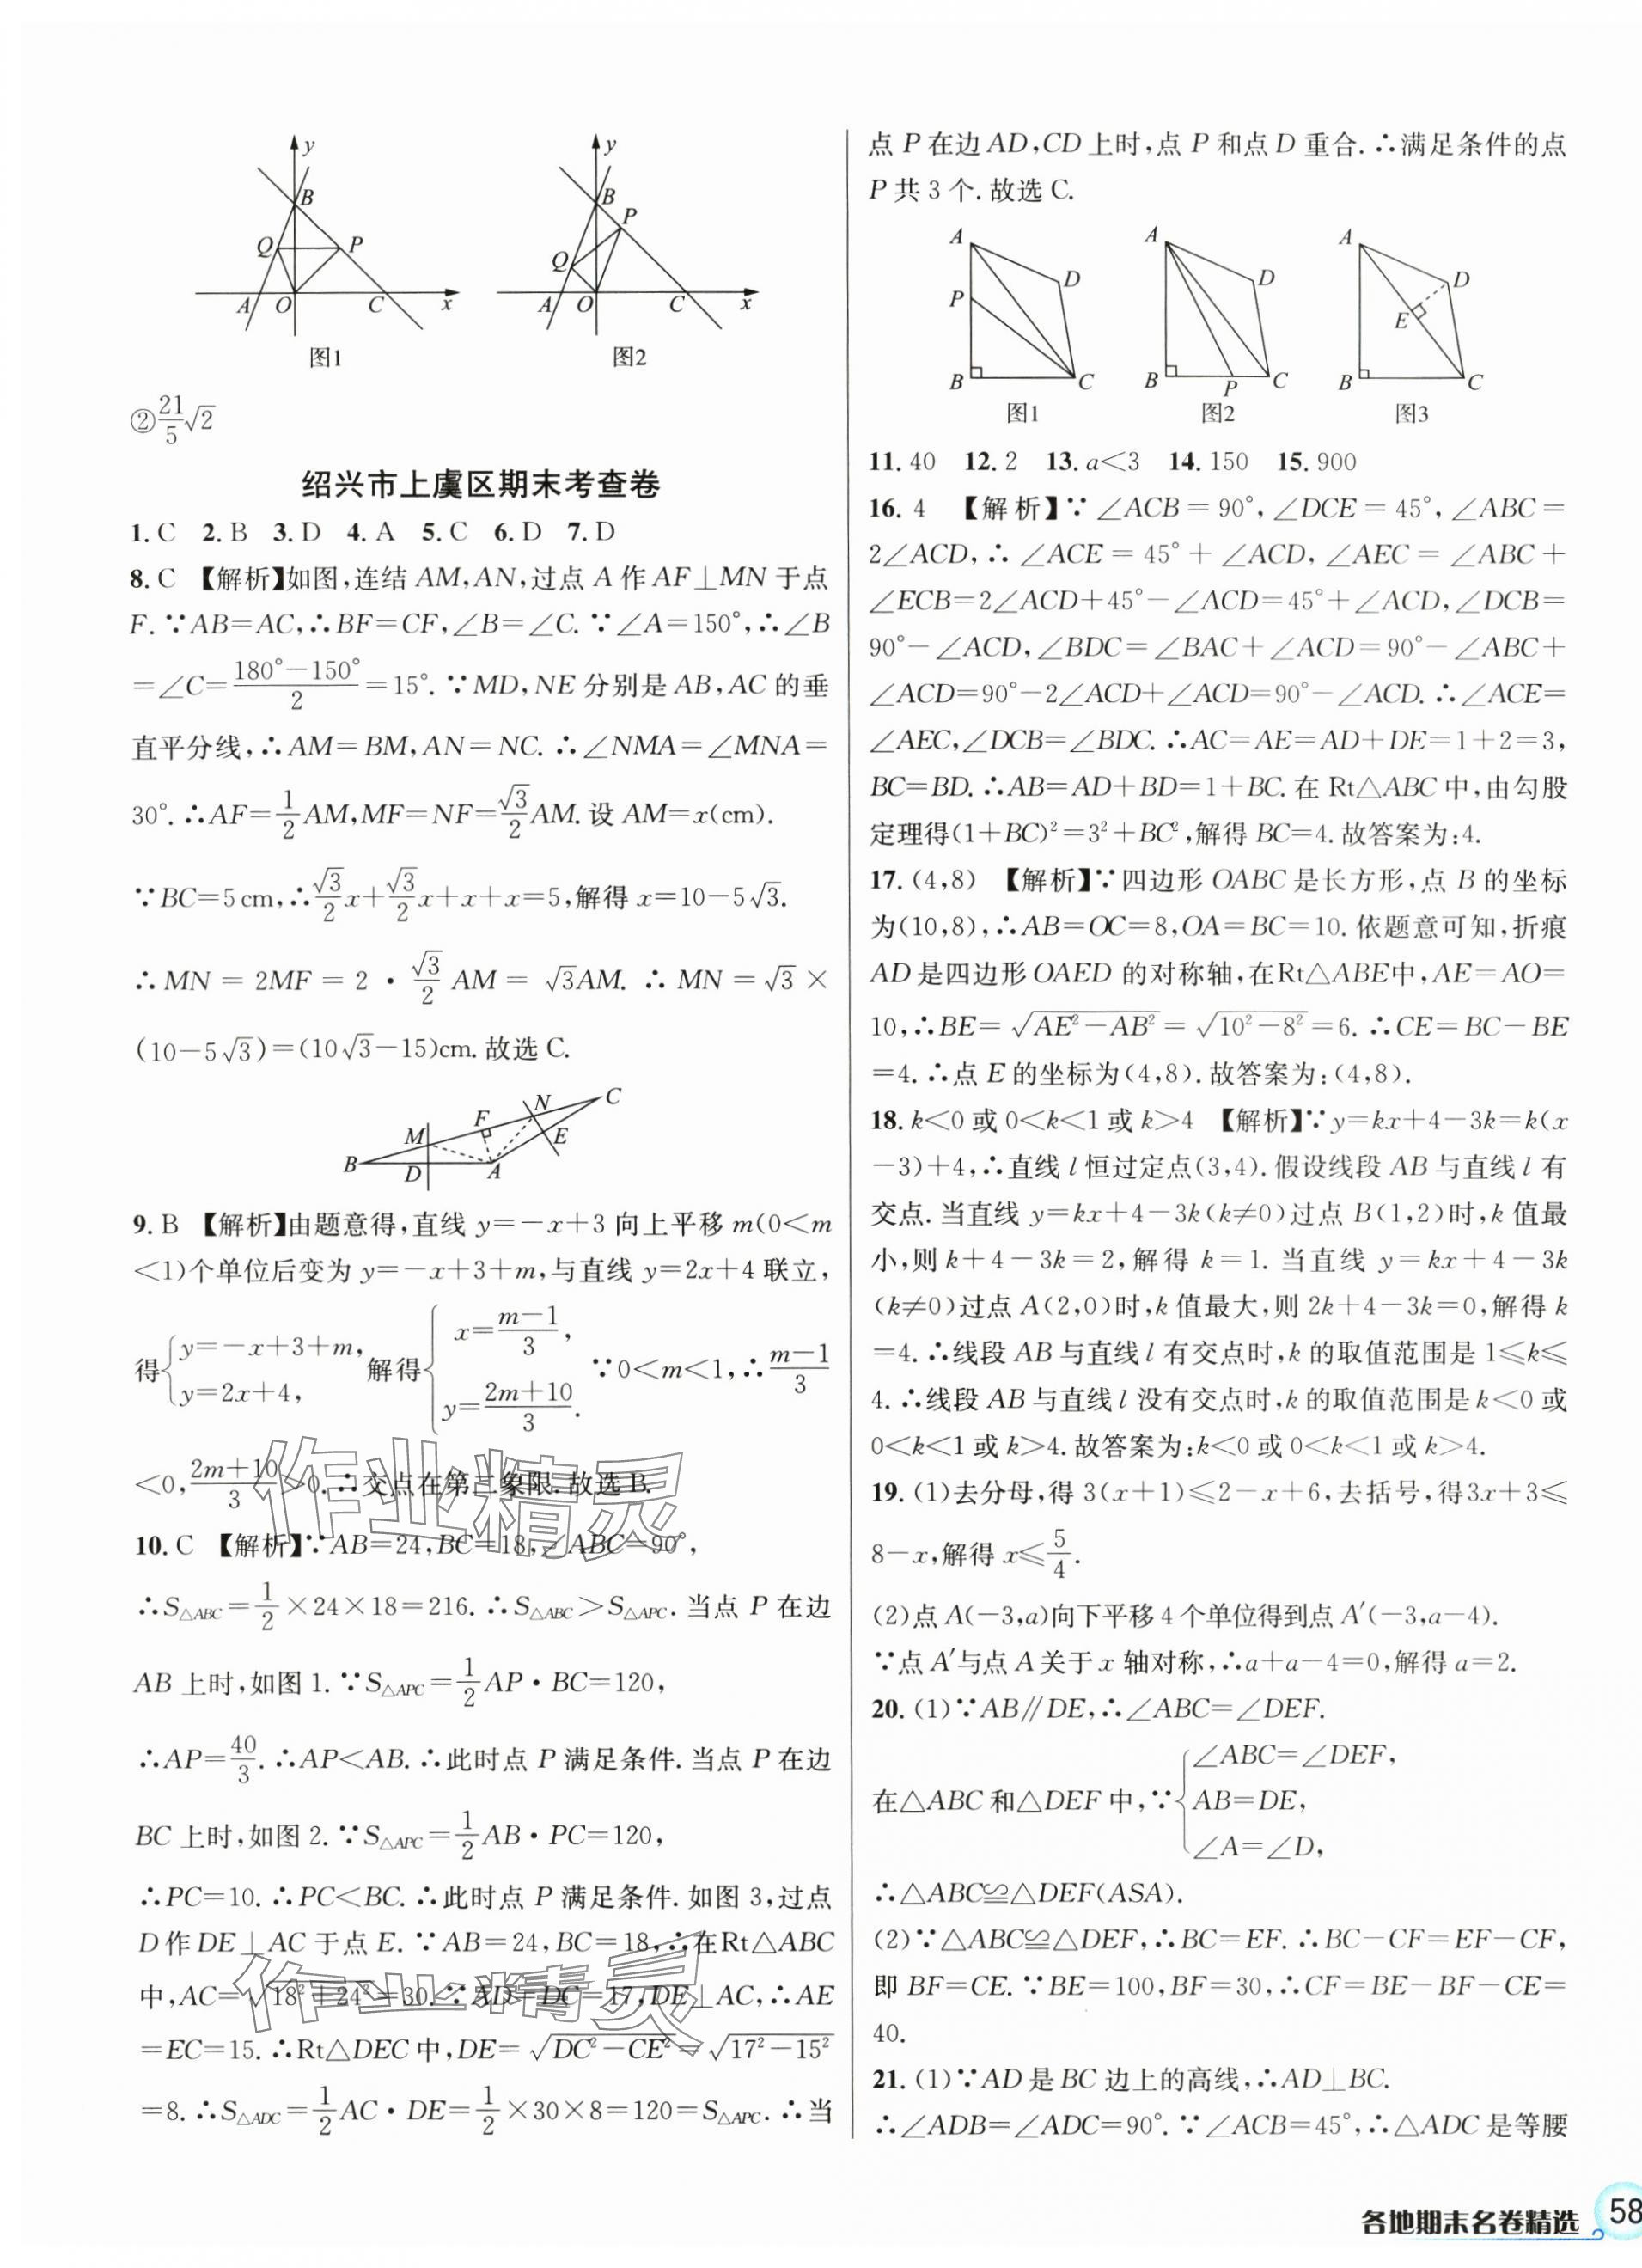 y
B
Q
P
A
O
C
x
图1
y
B
P
Q
A
O
C
x
图2
②21/5√2
绍兴市上虞区期末考查卷
1. C 2. B 3. D 4. A 5. C 6. D 7. D
8. C 【解析】如图,连结 AM,AN,过点 A 作 AF⊥MN 于点
F. ∵AB=AC,∴BF=CF,∠B=∠C. ∵∠A=150°,∴∠B
=∠C=(180°-150°)/2=15°. ∵MD,NE 分别是 AB,AC 的垂
直平分线,∴AM=BM,AN=NC. ∴∠NMA=∠MNA=
30°. ∴AF=1/2AM,MF=NF=√3/2AM. 设 AM=x(cm).
∵BC=5 cm,∴√3/2x+√3/2x+x+x=5,解得 x=10-5√3.
∴MN=2MF=2·√3/2AM=√3AM. ∴MN=√3×
(10-5√3)=(10√3-15)cm. 故选 C.
B
M
D
F
A
N
E
C
9. B 【解析】由题意得,直线 y=-x+3 向上平移 m(0<m
<1)个单位后变为 y=-x+3+m,与直线 y=2x+4 联立,
得{y=-x+3+m, y=2x+4, 解得{x=(m-1)/3, y=(2m+10)/3. ∵0<m<1,∴(m-1)/3
<0,(2m+10)/3>0. ∴交点在第二象限. 故选 B.
10. C 【解析】∵AB=24,BC=18,∠ABC=90°,
∴S△ABC=1/2×24×18=216. ∴S△ABC>S△APC. 当点 P 在边
AB 上时,如图 1. ∵S△APC=1/2AP·BC=120,
∴AP=40/3. ∴AP<AB. ∴此时点 P 满足条件. 当点 P 在边
BC 上时,如图 2. ∵S△APC=1/2AB·PC=120,
∴PC=10. ∴PC<BC. ∴此时点 P 满足条件. 如图 3,过点
D 作 DE⊥AC 于点 E. ∵AB=24,BC=18,∴在Rt△ABC
中,AC=√(18²+24²)=30. ∵AD=DC=17,DE⊥AC,∴AE
=EC=15. ∴Rt△DEC 中,DE=√(DC²-CE²)=√(17²-15²)
=8. ∴S△ADC=1/2AC·DE=1/2×30×8=120=S△APC. ∴当
作业精灵
作业精灵
点 P 在边 AD,CD 上时,点 P 和点 D 重合. ∴满足条件的点
P 共 3 个. 故选 C.
A
D
P
B
C
图1
A
D
B
P
C
图2
A
D
E
B
C
图3
11. 40 12. 2 13. a<3 14. 150 15. 900
16. 4 【解析】∵∠ACB=90°,∠DCE=45°,∠ABC=
2∠ACD,∴∠ACE=45°+∠ACD,∠AEC=∠ABC+
∠ECB=2∠ACD+45°-∠ACD=45°+∠ACD,∠DCB=
90°-∠ACD,∠BDC=∠BAC+∠ACD=90°-∠ABC+
∠ACD=90°-2∠ACD+∠ACD=90°-∠ACD. ∴∠ACE=
∠AEC,∠DCB=∠BDC. ∴AC=AE=AD+DE=1+2=3,
BC=BD. ∴AB=AD+BD=1+BC. 在 Rt△ABC 中,由勾股
定理得(1+BC)²=3²+BC²,解得 BC=4. 故答案为:4.
17. (4,8) 【解析】∵四边形 OABC 是长方形,点 B 的坐标
为(10,8),∴AB=OC=8,OA=BC=10. 依题意可知,折痕
AD 是四边形 OAED 的对称轴,在Rt△ABE中,AE=AO=
10,∴BE=√(AE²-AB²)=√(10²-8²)=6. ∴CE=BC-BE
=4. ∴点 E 的坐标为(4,8). 故答案为:(4,8).
18. k<0 或 0<k<1 或 k>4 【解析】∵y=kx+4-3k=k(x
-3)+4,∴直线 l 恒过定点(3,4). 假设线段 AB 与直线 l 有
交点. 当直线 y=kx+4-3k(k≠0)过点 B(1,2)时,k 值最
小,则 k+4-3k=2,解得 k=1. 当直线 y=kx+4-3k
(k≠0)过点 A(2,0)时,k 值最大,则 2k+4-3k=0,解得 k
=4. ∴线段 AB 与直线 l 有交点时,k 的取值范围是 1≤k≤
4. ∴线段 AB 与直线 l 没有交点时,k 的取值范围是 k<0 或
0<k<1 或 k>4. 故答案为:k<0 或 0<k<1 或 k>4.
19. (1)去分母,得 3(x+1)≤2-x+6,去括号,得3x+3≤
8-x,解得 x≤5/4.
(2)点 A(-3,a)向下平移 4 个单位得到点 A′(-3,a-4).
∵点 A′与点 A 关于 x 轴对称,∴a+a-4=0,解得 a=2.
20. (1)∵AB∥DE,∴∠ABC=∠DEF.
在△ABC 和△DEF 中,∵{∠ABC=∠DEF, AB=DE, ∠A=∠D,
∴△ABC≌△DEF(ASA).
(2)∵△ABC≌△DEF,∴BC=EF. ∴BC-CF=EF-CF,
即 BF=CE. ∵BE=100,BF=30,∴CF=BE-BF-CE=
40.
21. (1)∵AD 是 BC 边上的高线,∴AD⊥BC.
∴∠ADB=∠ADC=90°. ∵∠ACB=45°,∴△ADC 是等腰
各地期末名卷精选
58